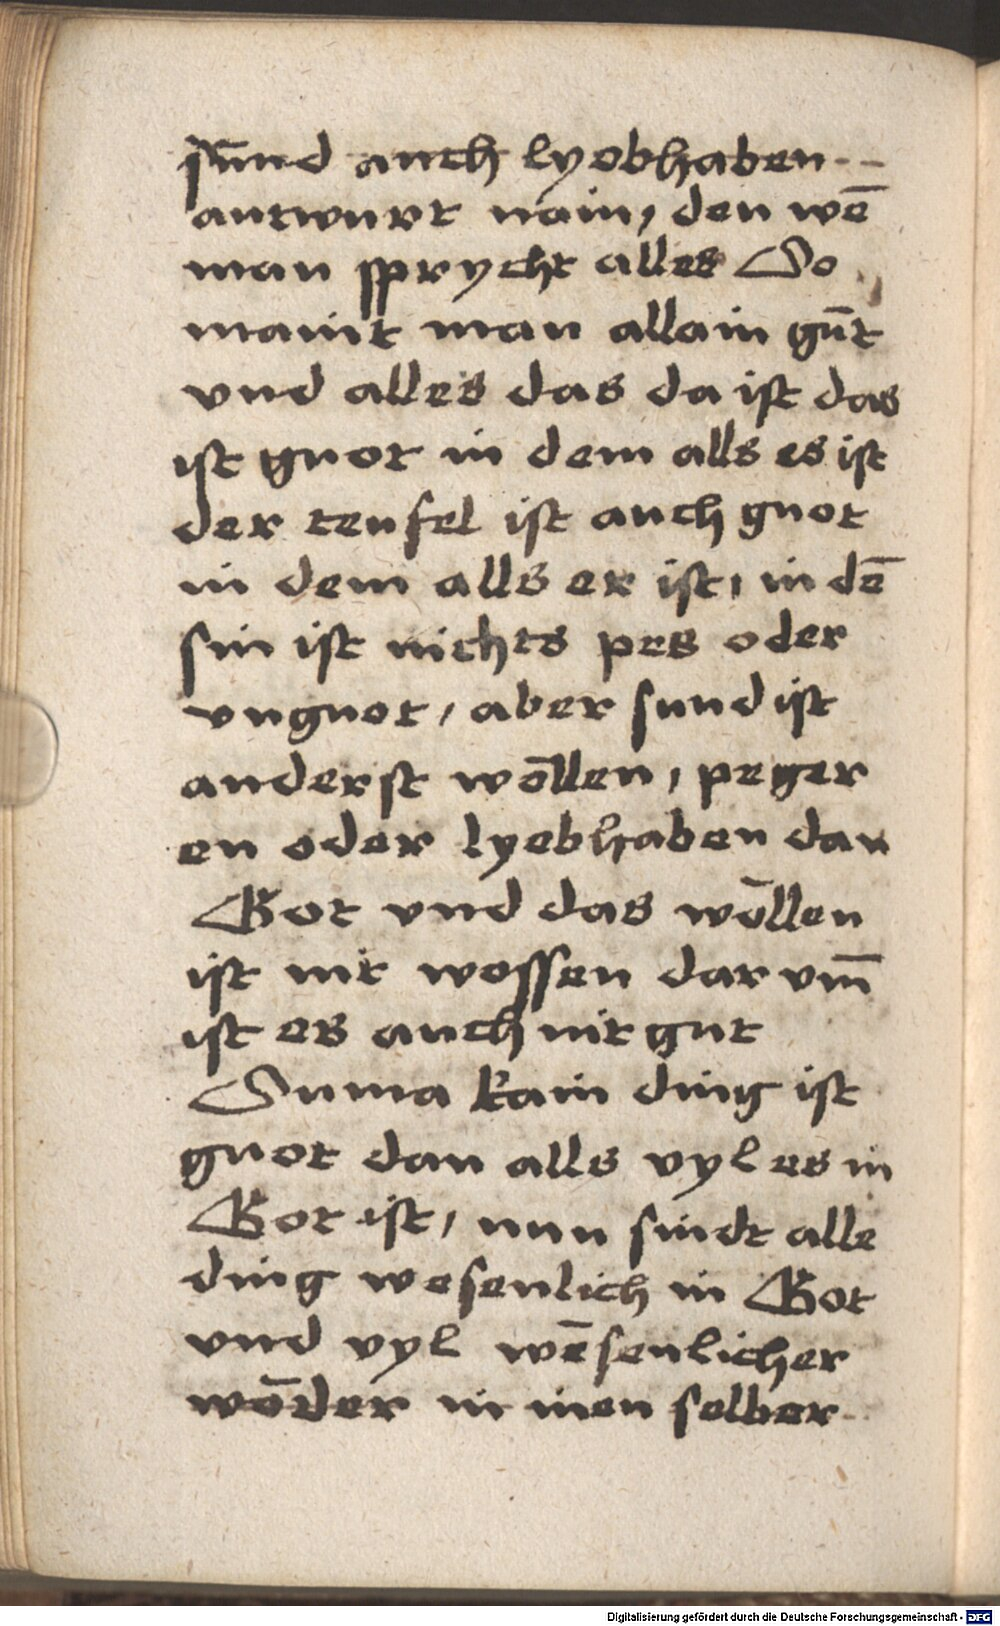 sūnd auch lyobhaben--
antwurt nain, den wē
man sprycht alles So
maint man allain gūt
vnd alles das da ist das
ist guot in dem alls es ist
der teufel ist auch guot
in dem alls er ist, in dē
sin ist nichts pes oder
vnguot, aber sund ist
anderst wōllen, peger
en oder lyebhaben dan
Got vnd das wōllen
ist nit wossen dar vm̄
ist es auch nit gut
Suma kain ding ist
guot dan alls vyl es in
Got ist, nun sindt alle
ding wesenlich in Got
vnd vyl wēsenlicher
wōder in inen selber-
Digitalisierung gefördert durch die Deutsche Forschungsgemeinschaft - DFG